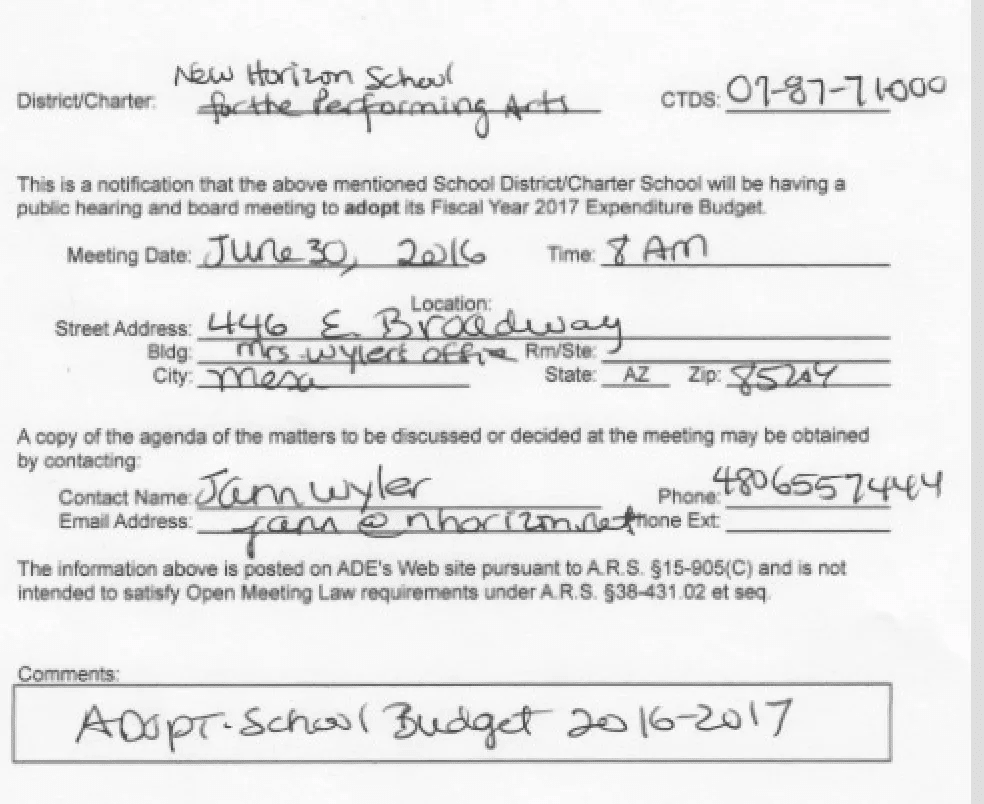 New Horizon School
District/Charter: for the Performing Arts CTDS: 07-87-71-000
This is a notification that the above mentioned School District/Charter School will be having a
public hearing and board meeting to adopt its Fiscal Year 2017 Expenditure Budget.
Meeting Date: June 30, 2016 Time: 8 AM
Location:
Street Address: 446 E. Broadway
Bldg: Mrs. Wyler's office Rm/Ste:
City: Mesa State: AZ Zip: 85204
A copy of the agenda of the matters to be discussed or decided at the meeting may be obtained
by contacting:
Contact Name: Jann Wyler Phone: 4806557444
Email Address: jann@nhorizon.net Phone Ext:
The information above is posted on ADE's Web site pursuant to A.R.S. §15-905(C) and is not
intended to satisfy Open Meeting Law requirements under A.R.S. §38-431.02 et seq.
Comments:
ADopt-School Budget 2016-2017